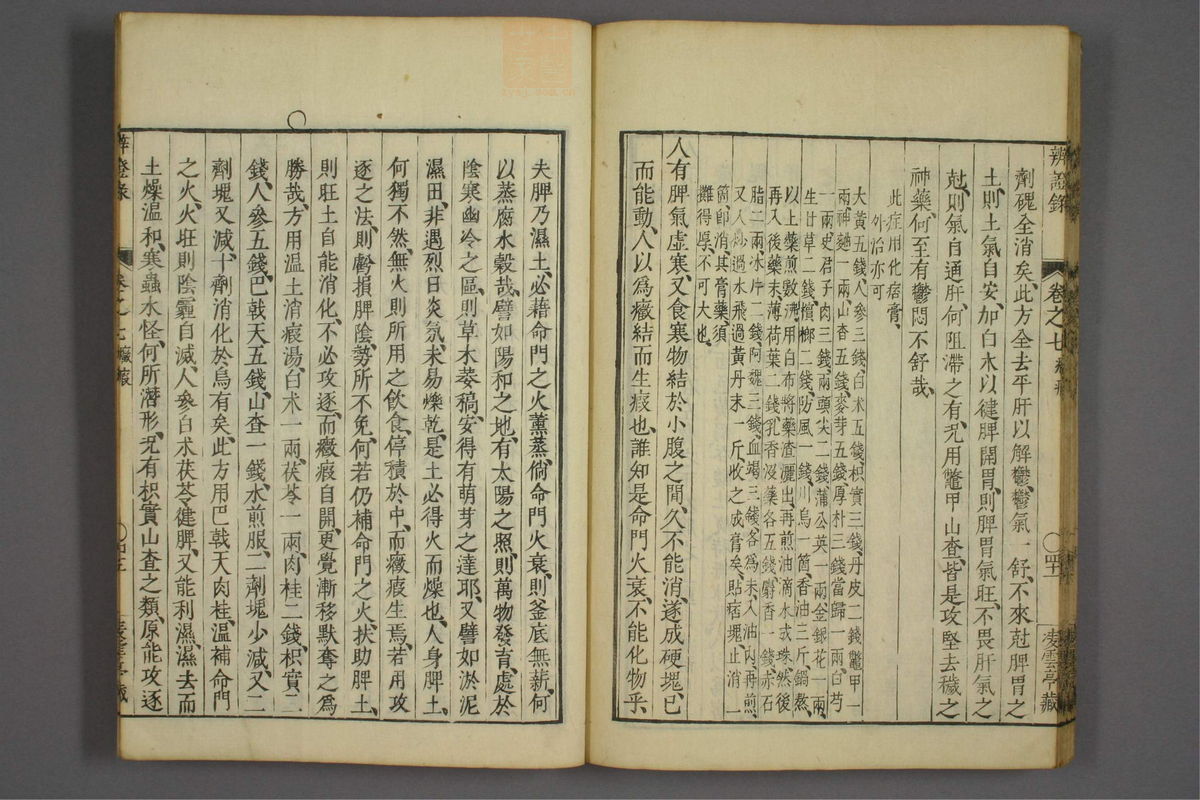 辨證錄
卷之七 癥瘕
凌雲亭藏
劑磈全消矣、此方全去平肝以解鬱、鬱氣一舒、不來尅脾胃之
土、則土氣自安、加白术以健脾開胃、則脾胃氣旺、不畏肝氣之
尅、則氣自通肝、何阻滯之有、况用鼈甲山查、皆是攻堅去穢之
神藥、何至有鬱悶不舒哉、
此症用化痞膏、
外治亦可
大黃五錢、人參三錢、白术五錢、枳實三錢、丹皮二錢、鼈甲一
兩、神麯一兩、山查五錢、麥芽五錢、厚朴三錢、當歸一兩、白芍
一兩、史君子肉三錢、兩頭尖二錢、蒲公英一兩、金銀花一兩、
生甘草二錢、檳榔二錢、防風一錢、川烏一箇、香油三斤、鍋熬、
以上藥煎數沸、用白布將藥渣瀝出、再煎油滴水成珠、然後
再入後藥末、薄荷葉二錢、乳香沒藥各五錢、麝香一錢、赤石
脂二兩、冰片二錢、阿魏三錢、血竭三錢、各爲末、入油內、再煎、
又入炒過水飛過黃丹末一斤、收之成膏矣、貼痞塊止消一
箇、卽消其膏藥、須
攤得厚、不可大也、
人有脾氣虛寒、又食寒物、結於小腹之間、久不能消、遂成硬塊、已
而能動、人以爲癥結而生瘕也、誰知是命門火衰、不能化物乎、
夫脾乃濕土、必藉命門之火薰蒸、倘命門火衰、則釜底無薪、何
以蒸腐水穀哉、譬如陽和之地、有太陽之照、則萬物發育、處於
陰寒幽冷之區、則草木萎稿、安得有萌芽之達耶、又譬如淤泥
濕田、非遇烈日炎氛、未易爍乾、是土必得火而燥也、人身脾土、
何獨不然、無火則所用之飲食、停積於中、而癥瘕生焉、若用攻
逐之法、則虧損脾陰、勢所不免、何若仍補命門之火、扶助脾土、
則旺土自能消化、不必攻逐、而癥瘕自開、更覺漸移默奪之爲
勝哉、方用溫土消瘕湯、白术一兩、茯苓一兩、肉桂二錢、枳實二
錢、人參五錢、巴戟天五錢、山查一錢、水煎服、二劑塊少減、又二
劑塊又減、十劑消化於烏有矣、此方用巴戟天肉桂、溫補命門
之火、火旺則陰霾自滅、人參白术茯苓、健脾、又能利濕、濕去而
土燥溫和、寒蟲水怪、何所潛形、况有枳實山查之類、原能攻逐
辨證錄
卷之七 癥瘕